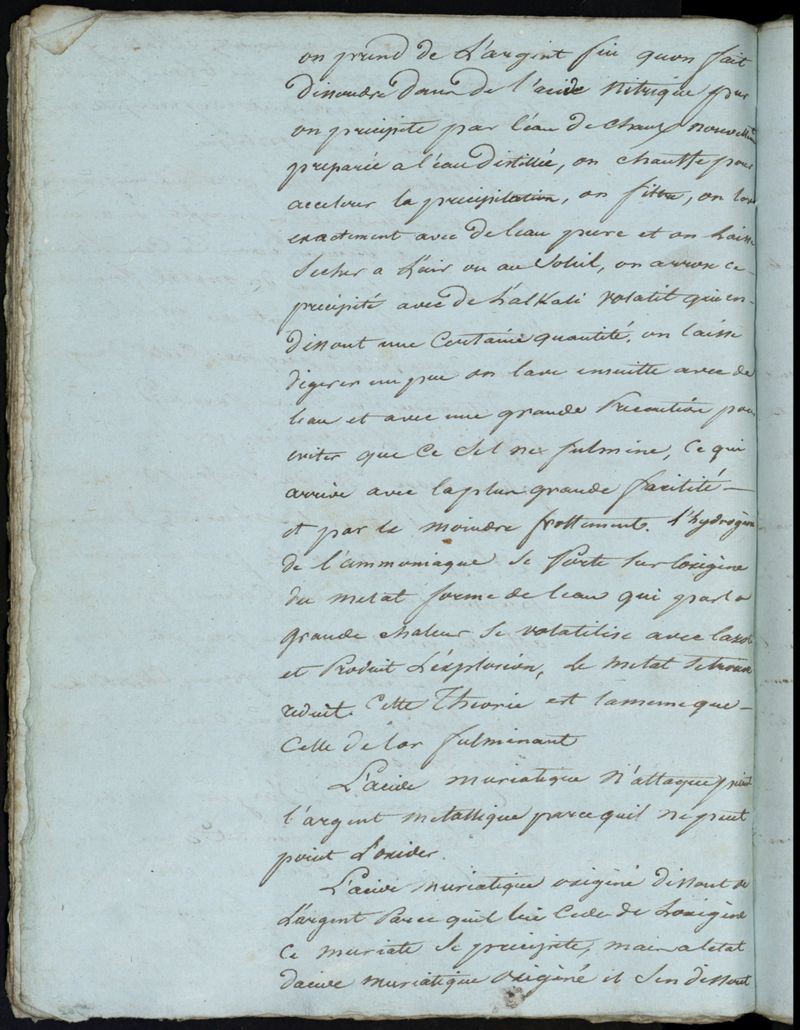 on prend de L'argent fin quon fait
dissoudre dans de l'acide Nitrique pur
on precipite par l'eau de chaux nouvellem
preparée a l'eau distillée, on chauffe pour
accelerer la precipitation, on filtre, on lave
exactement avec de leau pure et on laisse
Secher a L'air ou au Soleil, on arrose ce
precipité avec de l'alKali volatil qui en
dissout une Certaine quantité, on laisse
digerer un peu on lave ensuitte avec de
leau et avec une grande Precaution pour
eviter que Ce Sel ne fulmine, Ce qui
arrive avec la plus grande facilité —
et par le moindre frottement. l'hydrogene
de l'ammoniaque Se Porte Sur loxigène
du metal forme de leau qui par la
grande chaleur Se volatilise avec lazote
et Produit L'explosion, Le metal Se trouve
reduit. Cette Theorie est la meme que —
Celle de lor fulminant
L'acide muriatique N'attaque point
l'argent metallique parce quil ne peut
point L'oxider.
L'acide muriatique oxigéné dissout de
L'argent Parce quil lui Cede de Loxigène
Ce muriate Se precipite, mais a letat
dacide muriatique Oxigéné il Sen dissout